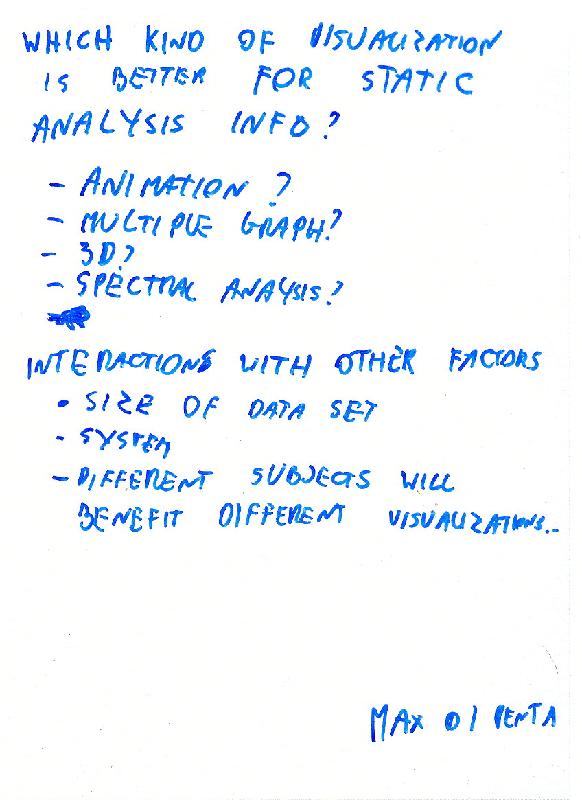 WHICH KIND OF VISUALIZATION
IS BETTER FOR STATIC
ANALYSIS INFO?
- ANIMATION?
- MULTIPLE GRAPH?
- 3D?
- SPECTRAL ANALYSIS?
INTERACTIONS WITH OTHER FACTORS
• SIZE OF DATA SET
- SYSTEM
- DIFFERENT SUBJECTS WILL
BENEFIT DIFFERENT VISUALIZATIONS..
MAX DI PENTA